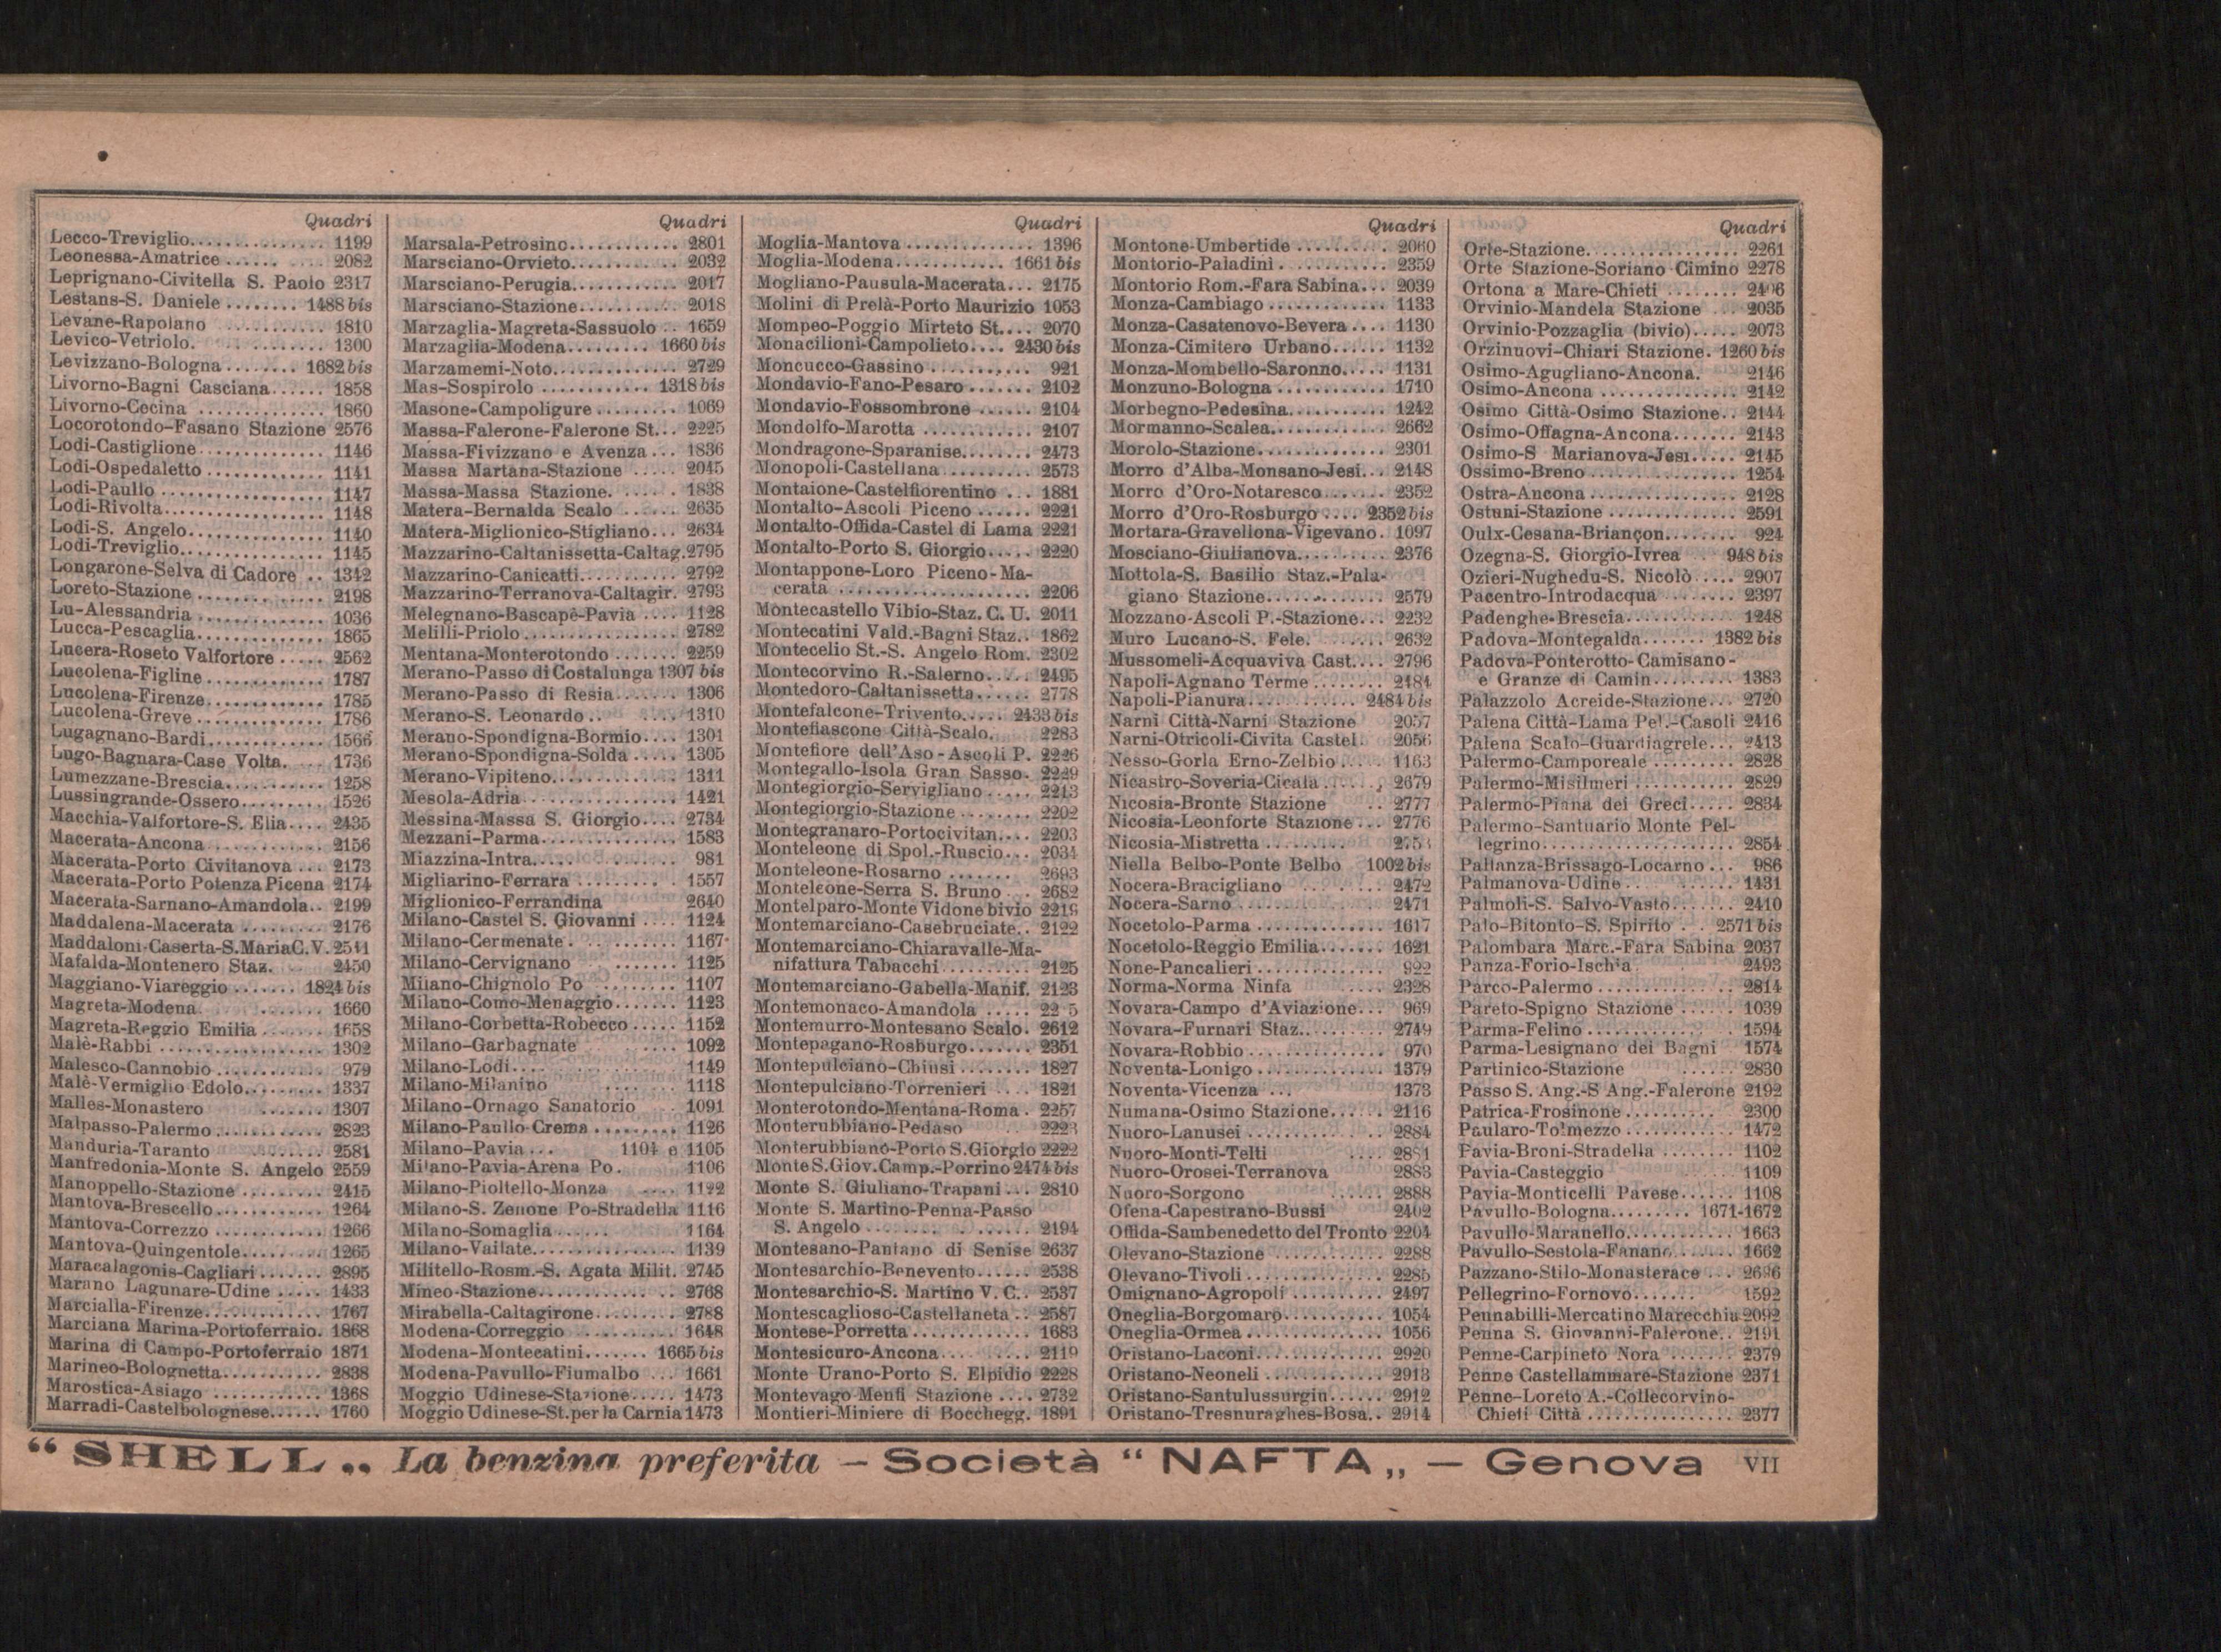 Quadri
Lecco-Treviglio................ 1199
Leonessa-Amatrice ...... .... 2082
Leprignano-Civitella S. Paolo 2317
Lestans-S. Daniele ........ 1488 bis
Levane-Rapolano ........... 1810
Levico-Vetriolo. .......... 1300
Levizzano-Bologna ........ 1682 bis
Livorno-Bagni Casciana...... 1858
Livorno-Cecina ............. 1860
Locorotondo-Fasano Stazione 2576
Lodi-Castiglione.............. 1146
Lodi-Ospedaletto ............ 1141
Lodi-Paullo ................. 1147
Lodi-Rivolta.................. 1148
Lodi-S. Angelo............... 1140
Lodi-Treviglio................ 1145
Longarone-Selva di Cadore .. 1342
Loreto-Stazione ............. 2198
Lu-Alessandria .............. 1036
Lucca-Pescaglia.............. 1865
Lucera-Roseto Valfortore ..... 2562
Lucolena-Figline ............. 1787
Lucolena-Firenze............. 1785
Lucolena-Greve .............. 1786
Lugagnano-Bardi............. 1566
Lugo-Bagnara-Case Volta. ... 1736
Lumezzane-Brescia........... 1258
Lussingrande-Ossero......... 1526
Macchia-Valfortore-S. Elia.... 2435
Macerata-Ancona ............ 2156
Macerata-Porto Civitanova ... 2173
Macerata-Porto Potenza Picena 2174
Macerata-Sarnano-Amandola.. 2199
Maddalena-Macerata ......... 2176
Maddaloni-Caserta-S.MariaC.V. 2541
Mafalda-Montenero Staz. .. 2450
Maggiano-Viareggio ....... 1824 bis
Magreta-Modena. ....... 1660
Magreta-Reggio Emilia ...... 1658
Malè-Rabbi .................. 1302
Malesco-Cannobio ............ 979
Malè-Vermiglio Edolo......... 1337
Malles-Monastero ....... 1307
Malpasso-Palermo............ 2823
Manduria-Taranto ........ 2581
Manfredonia-Monte S. Angelo 2559
Manoppello-Stazione ......... 2415
Mantova-Brescello............ 1264
Mantova-Correzzo ............ 1266
Mantova-Quingentole......... 1265
Maracalagonis-Cagliari ....... 2895
Marano Lagunare-Udine ..... 1433
Marcialla-Firenze............. 1767
Marciana Marina-Portoferraio. 1868
Marina di Campo-Portoferraio 1871
Marineo-Bolognetta........... 2838
Marostica-Asiago ............ 1368
Marradi-Castelbolognese...... 1760
Quadri
Marsala-Petrosino............ 2801
Marsciano-Orvieto............ 2032
Marsciano-Perugia............ 2017
Marsciano-Stazione........... 2018
Marzaglia-Magreta-Sassuolo .. 1659
Marzaglia-Modena......... 1660 bis
Marzamemi-Noto............. 2729
Mas-Sospirolo ............ 1318 bis
Masone-Campoligure......... 1069
Massa-Falerone-Falerone St... 2225
Massa-Fivizzano e Avenza... 1836
Massa Martana-Stazione ..... 2045
Massa-Massa Stazione. ...... 1838
Matera-Bernalda Scalo ...... 2635
Matera-Miglionico-Stigliano... 2634
Mazzarino-Caltanissetta-Caltag. 2795
Mazzarino-Canicatti........... 2792
Mazzarino-Terranova-Caltagir. 2793
Melegnano-Bascapè-Pavia .... 1128
Melilli-Priolo................. 2782
Mentana-Monterotondo ....... 2259
Merano-Passo di Costalunga 1307 bis
Merano-Passo di Resia....... 1306
Merano-S. Leonardo .. .... 1310
Merano-Spondigna-Bormio.... 1301
Merano-Spondigna-Solda ..... 1305
Merano-Vipiteno............. 1311
Mesola-Adria................. 1421
Messina-Massa S. Giorgio.... 2734
Mezzani-Parma............... 1583
Miazzina-Intra..... ....... 981
Migliarino-Ferrara ......... . 1557
Miglionico-Ferrandina 2640
Milano-Castel S. Giovanni .... 1124
Milano-Cermenate. .......... 1167
Milano-Cervignano ....... 1125
Milano-Chignolo Po ........ 1107
Milano-Como-Menaggio....... 1123
Milano-Corbetta-Robecco..... 1152
Milano-Garbagnate .... 1092
Milano-Lodi.... .......... 1149
Milano-Milanino ..... 1118
Milano-Ornago Sanatorio . 1091
Milano-Paullo-Crema ......... 1126
Milano-Pavia... 1104 e 1105
Milano-Pavia-Arena Po. 1106
Milano-Pioltello-Monza .... 1122
Milano-S. Zenone Po-Stradella 1116
Milano-Somaglia ...... 1164
Milano-Vailate............... 1139
Militello-Rosm.-S. Agata Milit. 2745
Mineo-Stazione............. 2768
Mirabella-Caltagirone......... 2788
Modena-Correggio .......... 1648
Modena-Montecatini....... 1665 bis
Modena-Pavullo-Fiumalbo ... 1661
Moggio Udinese-Stazione..... 1473
Moggio Udinese-St. per la Carnia 1473
Quadri
Moglia-Mantova .............. 1396
Moglia-Modena............ 1661 bis
Mogliano-Pausula-Macerata... 2175
Molini di Prelà-Porto Maurizio 1053
Mompeo-Poggio Mirteto St.... 2070
Monacilioni-Campolieto.... 2430 bis
Moncucco-Gassino ........... 921
Mondavio-Fano-Pesaro ....... 2102
Mondavio-Fossombrone ...... 2104
Mondolfo-Marotta ............ 2107
Mondragone-Sparanise........ 2473
Monopoli-Castellana.......... 2573
Montaione-Castelfiorentino ... 1881
Montalto-Ascoli Piceno ...... 2221
Montalto-Offida-Castel di Lama 2221
Montalto-Porto S. Giorgio..... 2220
Montappone-Loro Piceno-Ma-
cerata ...................... 2206
Montecastello Vibio-Staz. C. U. 2011
Montecatini Vald.-Bagni Staz.. 1862
Montecelio St.-S. Angelo Rom. 2302
Montecorvino R.-Salerno..... 2495
Montedoro-Caltanissetta...... 2778
Montefalcone-Trivento..... 2433 bis
Montefiascone Città-Scalo. 2283
Montefiore dell'Aso-Ascoli P. 2226
Montegallo-Isola Gran Sasso. 2229
Montegiorgio-Servigliano ..... 2213
Montegiorgio-Stazione ........ 2202
Montegranaro-Portocivitan.... 2203
Monteleone di Spol.-Ruscio... 2034
Monteleone-Rosarno ....... 2693
Monteleone-Serra S. Bruno ... 2682
Montelparo-Monte Vidone bivio
Montemarciano-Casebruciate.. 2122
Montemarciano-Chiaravalle-Ma-
nifattura Tabacchi.......... 2125
Montemarciano-Gabella-Manif. 2123
Montemonaco-Amandola .....
Montemurro-Montesano Scalo. 2612
Montepagano-Rosburgo....... 2351
Montepulciano-Chiusi ....... 1827
Montepulciano-Torrenieri .... 1821
Monterotondo-Mentana-Roma. 2257
Monterubbiano-Pedaso .. 2223
Monterubbiano-Porto S.Giorgio 2222
Monte S.Giov.Camp.-Porrino 2474 bis
Monte S. Giuliano-Trapani... 2810
Monte S. Martino-Penna-Passo
S. Angelo ........ . ...... 2194
Montesano-Pantano di Senise 2637
Montesarchio-Benevento...... 2538
Montesarchio-S. Martino V. C.. 2537
Montescaglioso-Castellaneta .. 2587
Montese-Porretta ............ 1683
Montesicuro-Ancona.......... 2119
Monte Urano-Porto S. Elpidio 2228
Montevago Menfi Stazione .... 2732
Montieri-Miniere di Bocchegg. 1891
Quadri
Montone-Umbertide ......... 2060
Montorio-Paladini. .......... 2359
Montorio Rom.-Fara Sabina... 2039
Monza-Cambiago ............ 1133
Monza-Casatenovo-Bevera .... 1130
Monza-Cimitero Urbano...... 1132
Monza-Mombello-Saronno..... 1131
Monzuno-Bologna ............ 1710
Morbegno-Pedesina........... 1242
Mormanno-Scalea............ 2662
Morolo-Stazione.............. 2301
Morro d'Alba-Monsano-Jesi... 2148
Morro d'Oro-Notaresco....... 2352
Morro d'Oro-Rosburgo .... 2352 bis
Mortara-Gravellona-Vigevano. 1097
Mosciano-Giulianova.......... 2376
Mottola-S. Basilio Staz.-Pala-
giano Stazione............. 2579
Mozzano-Ascoli P.-Stazione... 2232
Muro Lucano-S. Fele. ..... 2632
Mussomeli-Acquaviva Cast.... 2796
Napoli-Agnano Terme ........ 2484
Napoli-Pianura............ 2484 bis
Narni Città-Narni Stazione 2057
Narni-Otricoli-Civita Castel. 2056
Nesso-Gorla Erno-Zelbio..... 1163
Nicastro-Soveria-Cicala ....... 2679
Nicosia-Bronte Stazione .. 2777
Nicosia-Leonforte Stazione... 2776
Nicosia-Mistretta ..........
Niella Belbo-Ponte Belbo 1002 bis
Nocera-Bracigliano ........ 2472
Nocera-Sarno ............... 2471
Nocetolo-Parma .............. 1617
Nocetolo-Reggio Emilia....... 1621
None-Pancalieri .............. 922
Norma-Norma Ninfa ..... 2328
Novara-Campo d'Aviazione... 969
Novara-Furnari Staz.......... 2749
Novara-Robbio ............... 970
Noventa-Lonigo .............. 1379
Noventa-Vicenza ... 1373
Numana-Osimo Stazione...... 2116
Nuoro-Lanusei ............. 2884
Nuoro-Monti-Telti .... 2881
Nuoro-Orosei-Terranova 2883
Nuoro-Sorgono ...... 2888
Ofena-Capestrano-Bussi 2402
Offida-Sambenedetto del Tronto 2204
Olevano-Stazione ............ 2288
Olevano-Tivoli ............... 2285
Omignano-Agropoli .......... 2497
Oneglia-Borgomaro........... 1054
Oneglia-Ormea ............... 1056
Oristano-Laconi.............. 2920
Oristano-Neoneli ............. 2913
Oristano-Santulussurgiu...... 2912
Oristano-Tresnuraghes-Bosa.. 2914
Quadri
Orte-Stazione................. 2261
Orte Stazione-Soriano Cimino 2278
Ortona a Mare-Chieti ........ 2406
Orvinio-Mandela Stazione ... 2035
Orvinio-Pozzaglia (bivio)..... 2073
Orzinuovi-Chiari Stazione. 1260 bis
Osimo-Agugliano-Ancona. 2146
Osimo-Ancona ............... 2142
Osimo Città-Osimo Stazione.. 2144
Osimo-Offagna-Ancona....... 2143
Osimo-S Marianova-Jesi..... 2145
Ossimo-Breno ................ 1254
Ostra-Ancona ................ 2128
Ostuni-Stazione .............. 2591
Oulx-Cesana-Briançon........ 924
Ozegna-S. Giorgio-Ivrea .. 948 bis
Ozieri-Nughedu-S. Nicolò ..... 2907
Pacentro-Introdacqua ........ 2397
Padenghe-Brescia............ 1248
Padova-Montegalda....... 1382 bis
Padova-Ponterotto-Camisano-
e Granze di Camin......... 1383
Palazzolo Acreide-Stazione... 2720
Palena Città-Lama Pel.-Casoli 2416
Palena Scalo-Guardiagrele... 2413
Palermo-Camporeale ......... 2828
Palermo-Misilmeri ........... 2829
Palermo-Piana dei Greci..... 2834
Palermo-Santuario Monte Pel-
legrino..................... 2854
Pallanza-Brissago-Locarno ... 986
Palmanova-Udine... ...... 1431
Palmoli-S. Salvo-Vasto....... 2410
Palo-Bitonto-S. Spirito . . 2571 bis
Palombara Marc.-Fara Sabina 2037
Panza-Forio-Ischia. 2493
Parco-Palermo ............... 2814
Pareto-Spigno Stazione ...... 1039
Parma-Felino ............ 1594
Parma-Lesignano dei Bagni 1574
Partinico-Stazione ...... 2830
Passo S. Ang.-S Ang.-Falerone 2192
Patrica-Frosinone .......... 2300
Paularo-Tolmezzo ............ 1472
Pavia-Broni-Stradella ........ 1102
Pavia-Casteggio ..... 1109
Pavia-Monticelli Pavese...... 1108
Pavullo-Bologna......... 1671-1672
Pavullo-Maranello............ 1663
Pavullo-Sestola-Fanano....... 1662
Pazzano-Stilo-Monasterace ...
Pellegrino-Fornovo....... 1592
Pennabilli-Mercatino Marecchia 2092
Penna S. Giovanni-Falerone.. 2191
Penne-Carpineto Nora ....... 2379
Penne Castellammare-Stazione 2371
Penne-Loreto A.-Collecorvino-
Chieti Città ................ 2377
“ SHELL „ La benzina preferita – Società “ NAFTA „ – Genova VII